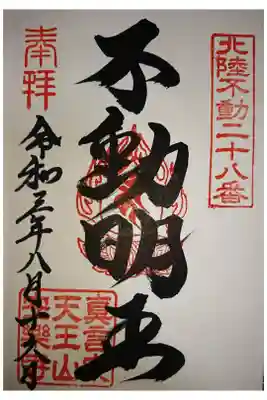 北陸不動二十八番
不動明王
奉拝
令和三年八月十六日
真言宗
天王山